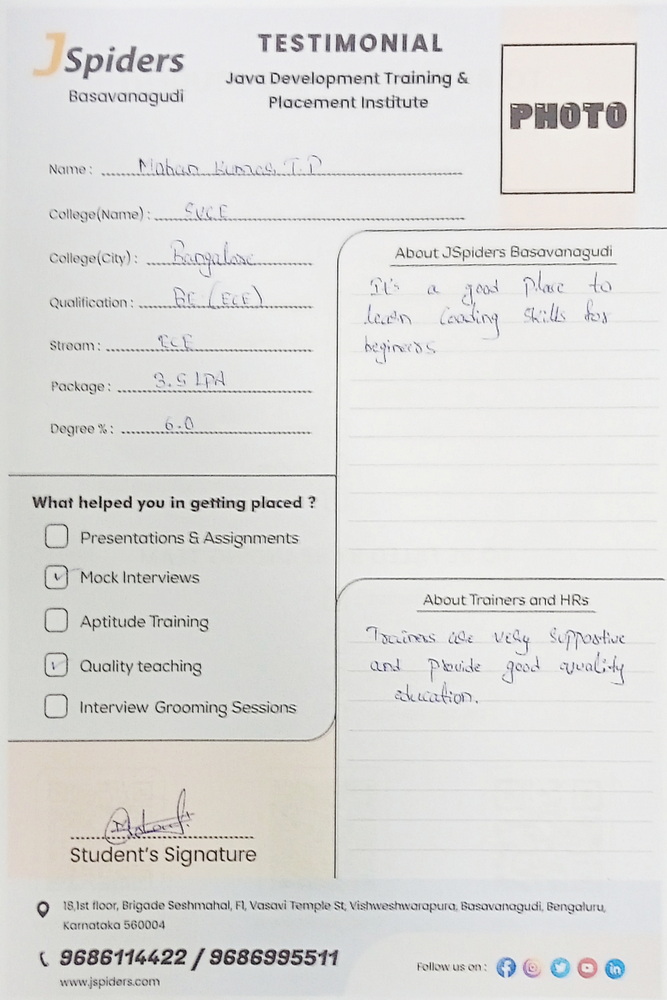 JSpiders
Basavanagudi
TESTIMONIAL
Java Development Training &
Placement Institute
PHOTO
Name : Mohan Kumar T.P
College(Name) : SVCE
College(City) : Bangalore
Qualification : BE (ECE)
Stream : ECE
Package : 3.5 LPA
Degree % : 6.0
What helped you in getting placed ?
Presentations & Assignments
Mock Interviews
Aptitude Training
Quality teaching
Interview Grooming Sessions
Student's Signature
About JSpiders Basavanagudi
It's a good place to
learn Coading skills for
begineers
About Trainers and HRs
Trainers are very suppostive
and provide good quality
education.
18,1st floor, Brigade Seshmahal, F1, Vasavi Temple St, Vishweshwarapura, Basavanagudi, Bengaluru,
Karnataka 560004
9686114422 / 9686995511
www.jspiders.com
Follow us on :